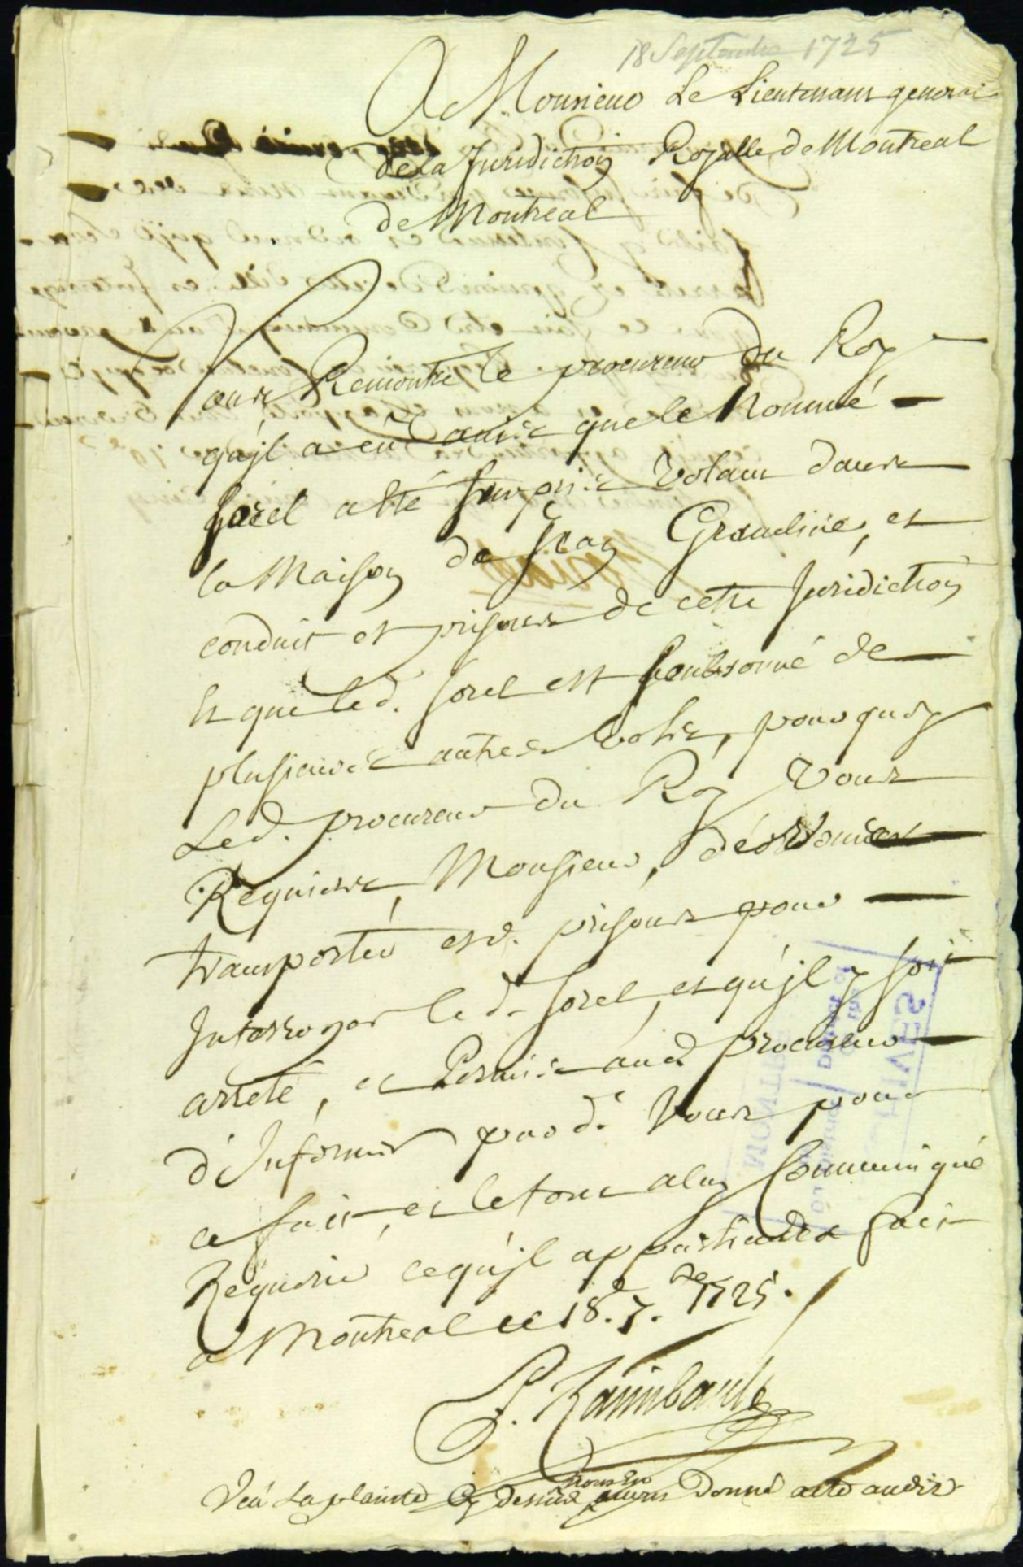 18 Septembre 1725
A Monsieur Le Lieutenant general
de la Juridiction Royalle de Montreal
de Montreal
Vous Remontre le procureur du Roy
qu'jl a eû auis que le Nommé
Sorel a esté surpris volant dans
la Maison de Jean Gradelice, et
conduit es prisons de cette Juridiction
Et que led. Sorel est soubsonné de
plusieurs autres vols, pourquoy
Led. procureur du Roy Vous
Requiert, Monsieur, d'estre
transporter esd. prisons pour
Interroger led. Sorel, et qu'jl y soit
arreté, et Permis aud procureur
d'Informer pard. Vous pour
ce fait, et le tout a luy Communiqué
Requerir ce qu'jl appartiendra fait
a Montreal ce 18.e 7.bre 1725.
P. Raimbault
Veu La plainte Cy dessus
nous en
auons donné acte audit